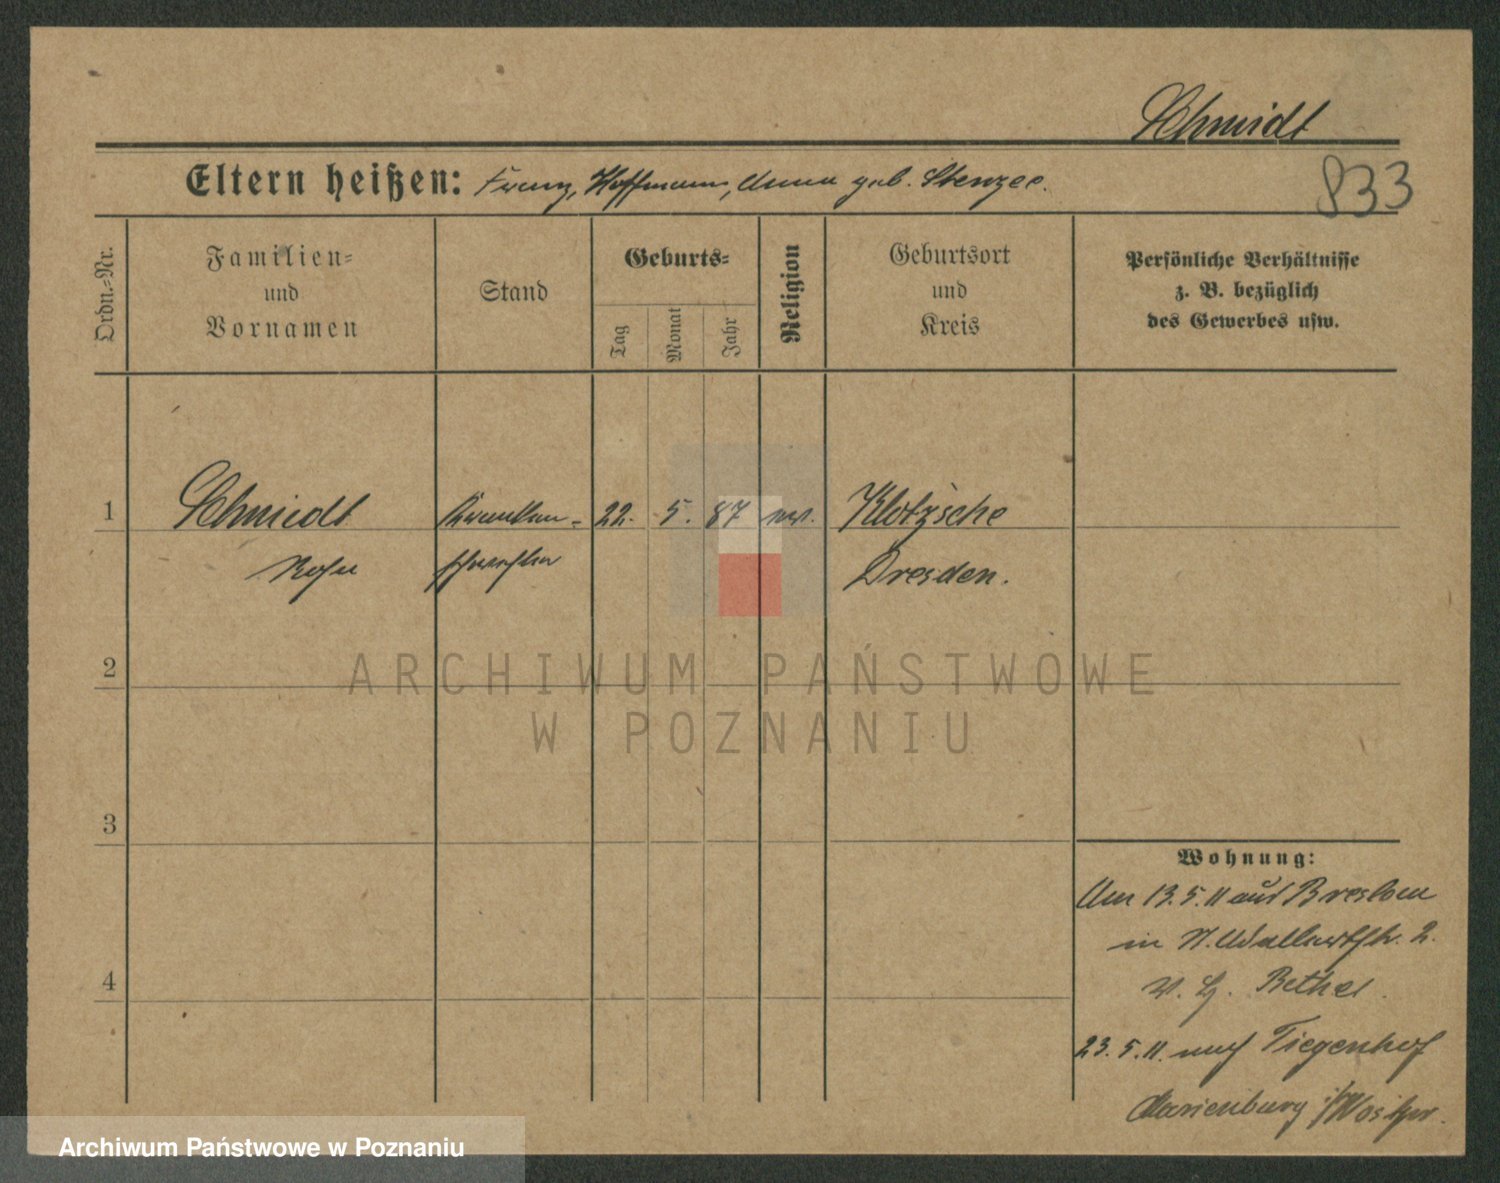 Schmidt
Eltern heißen: Franz, Hoffmann, Anna geb. Stenzel.
833
Ordn.-Nr.
Familien-
und
Vornamen
Stand
Geburts-
Tag
Monat
Jahr
Religion
Geburtsort
und
Kreis
Persönliche Verhältnisse
z. B. bezüglich
des Gewerbes usw.
1 Schmidt Kranken- 22. 5. 87 Klotzsche
Rosa schwester Dresden.
2
ARCHIWUM PAŃSTWOWE
W POZNANIU
3
Wohnung:
Am 13.5.11 aus Breslau
in 2.
4
Bethel
23.5.11 nach Tiegenhof
Marienburg
Archiwum Państwowe w Poznaniu